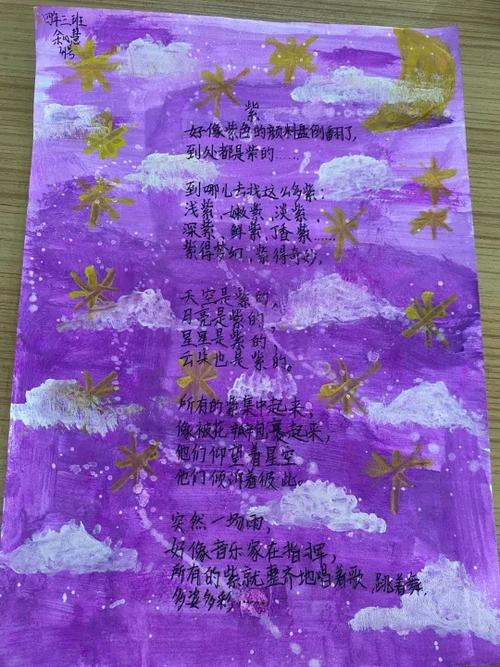 四年三班
余心慧
39号
紫
好像紫色的颜料盘倒翻了，
到处都是紫的……
到哪儿去找这么多紫：
浅紫、嫩紫、淡紫、
深紫、鲜紫、丁香紫……
紫得梦幻、紫得奇妙。
天空是紫的，
月亮是紫的，
星星是紫的，
云朵也是紫的。
所有的紫集中起来，
像被花瓣包裹起来，
他们仰望着星空
他们倾诉着彼此。
突然一场雨，
好像音乐家在指挥，
所有的紫就整齐地唱着歌，跳着舞，
多姿多彩……